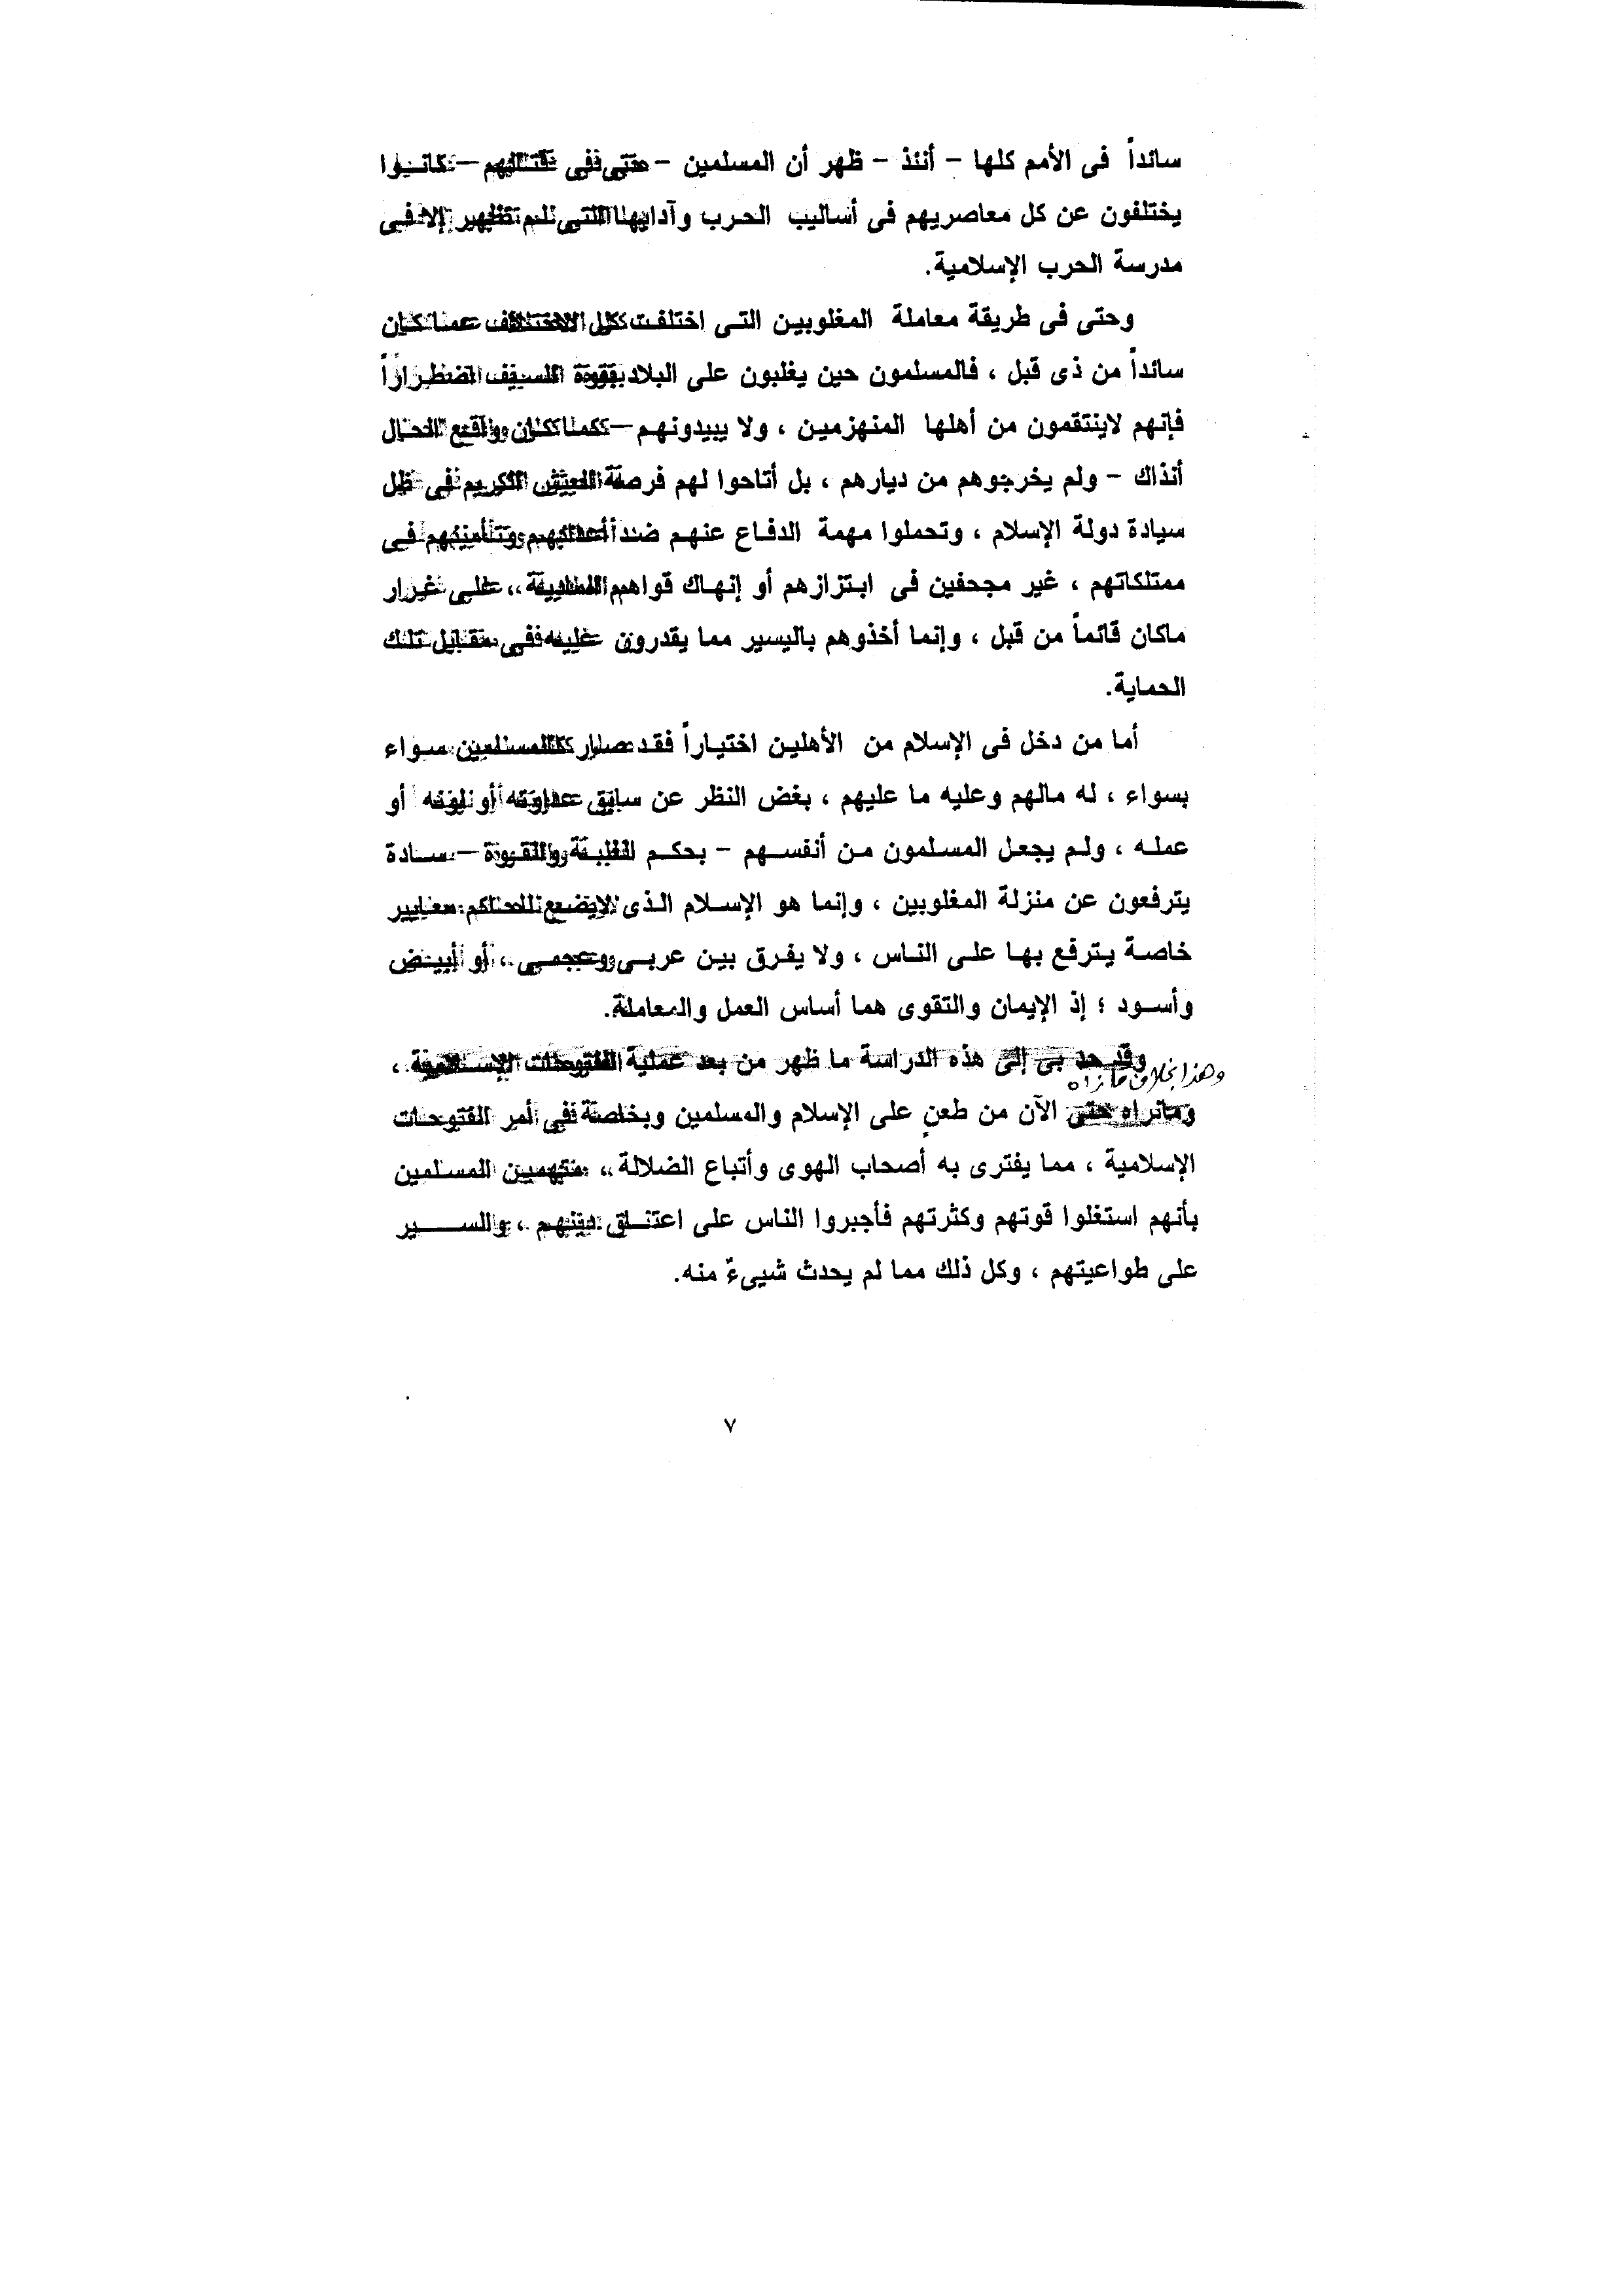 سائداً فى الأمم كلها - أنئذ - ظهر أن المسلمين - حتى فى قتالهم - كانوا
يختلفون عن كل معاصريهم فى أساليب الحرب وآدابها التى لم تظهر إلا فى
مدرسة الحرب الإسلامية.
وحتى فى طريقة معاملة المغلوبين التى اختلفت كل الاختلاف عما كان
سائداً من ذى قبل ، فالمسلمون حين يغلبون على البلاد بقوة السيف اضطراراً
فإنهم لاينتقمون من أهلها المنهزمين ، ولا يبيدونهم - كما كان واقع الحال
أنذاك - ولم يخرجوهم من ديارهم ، بل أتاحوا لهم فرصة العيش الكريم فى ظل
سيادة دولة الإسلام ، وتحملوا مهمة الدفاع عنهم ضد أعدائهم وتأمينهم فى
ممتلكاتهم ، غير مجحفين فى ابتزازهم أو إنهاك قواهم المادية ، على غرار
ماكان قائماً من قبل ، وإنما أخذوهم باليسير مما يقدرون عليه فى مقابل تلك
الحماية.
أما من دخل فى الإسلام من الأهلين اختياراً فقد صار كالمسلمين سواء
بسواء ، له مالهم وعليه ما عليهم ، بغض النظر عن سابق عداوته أو لونه أو
عمله ، ولم يجعل المسلمون من أنفسهم - بحكم الغلبة والقوة - سادة
يترفعون عن منزلة المغلوبين ، وإنما هو الإسلام الذى لايضع للحاكم معايير
خاصة يترفع بها على الناس ، ولا يفرق بين عربى وعجمى ، أو أبيض
وأسود ؛ إذ الإيمان والتقوى هما أساس العمل والمعاملة.
وقد حد بى إلى هذه الدراسة ما ظهر من بعد عملية الفتوحات الإسلامية ،
وهذا بخلاف ما نراه
ومانراه حتى الآن من طعنٍ على الإسلام والمسلمين وبخاصة فى أمر الفتوحات
الإسلامية ، مما يفترى به أصحاب الهوى وأتباع الضلالة ، متهمين المسلمين
بأنهم استغلوا قوتهم وكثرتهم فأجبروا الناس على اعتناق دينهم ، والسير
على طواعيتهم ، وكل ذلك مما لم يحدث شيىءٌ منه.
٧